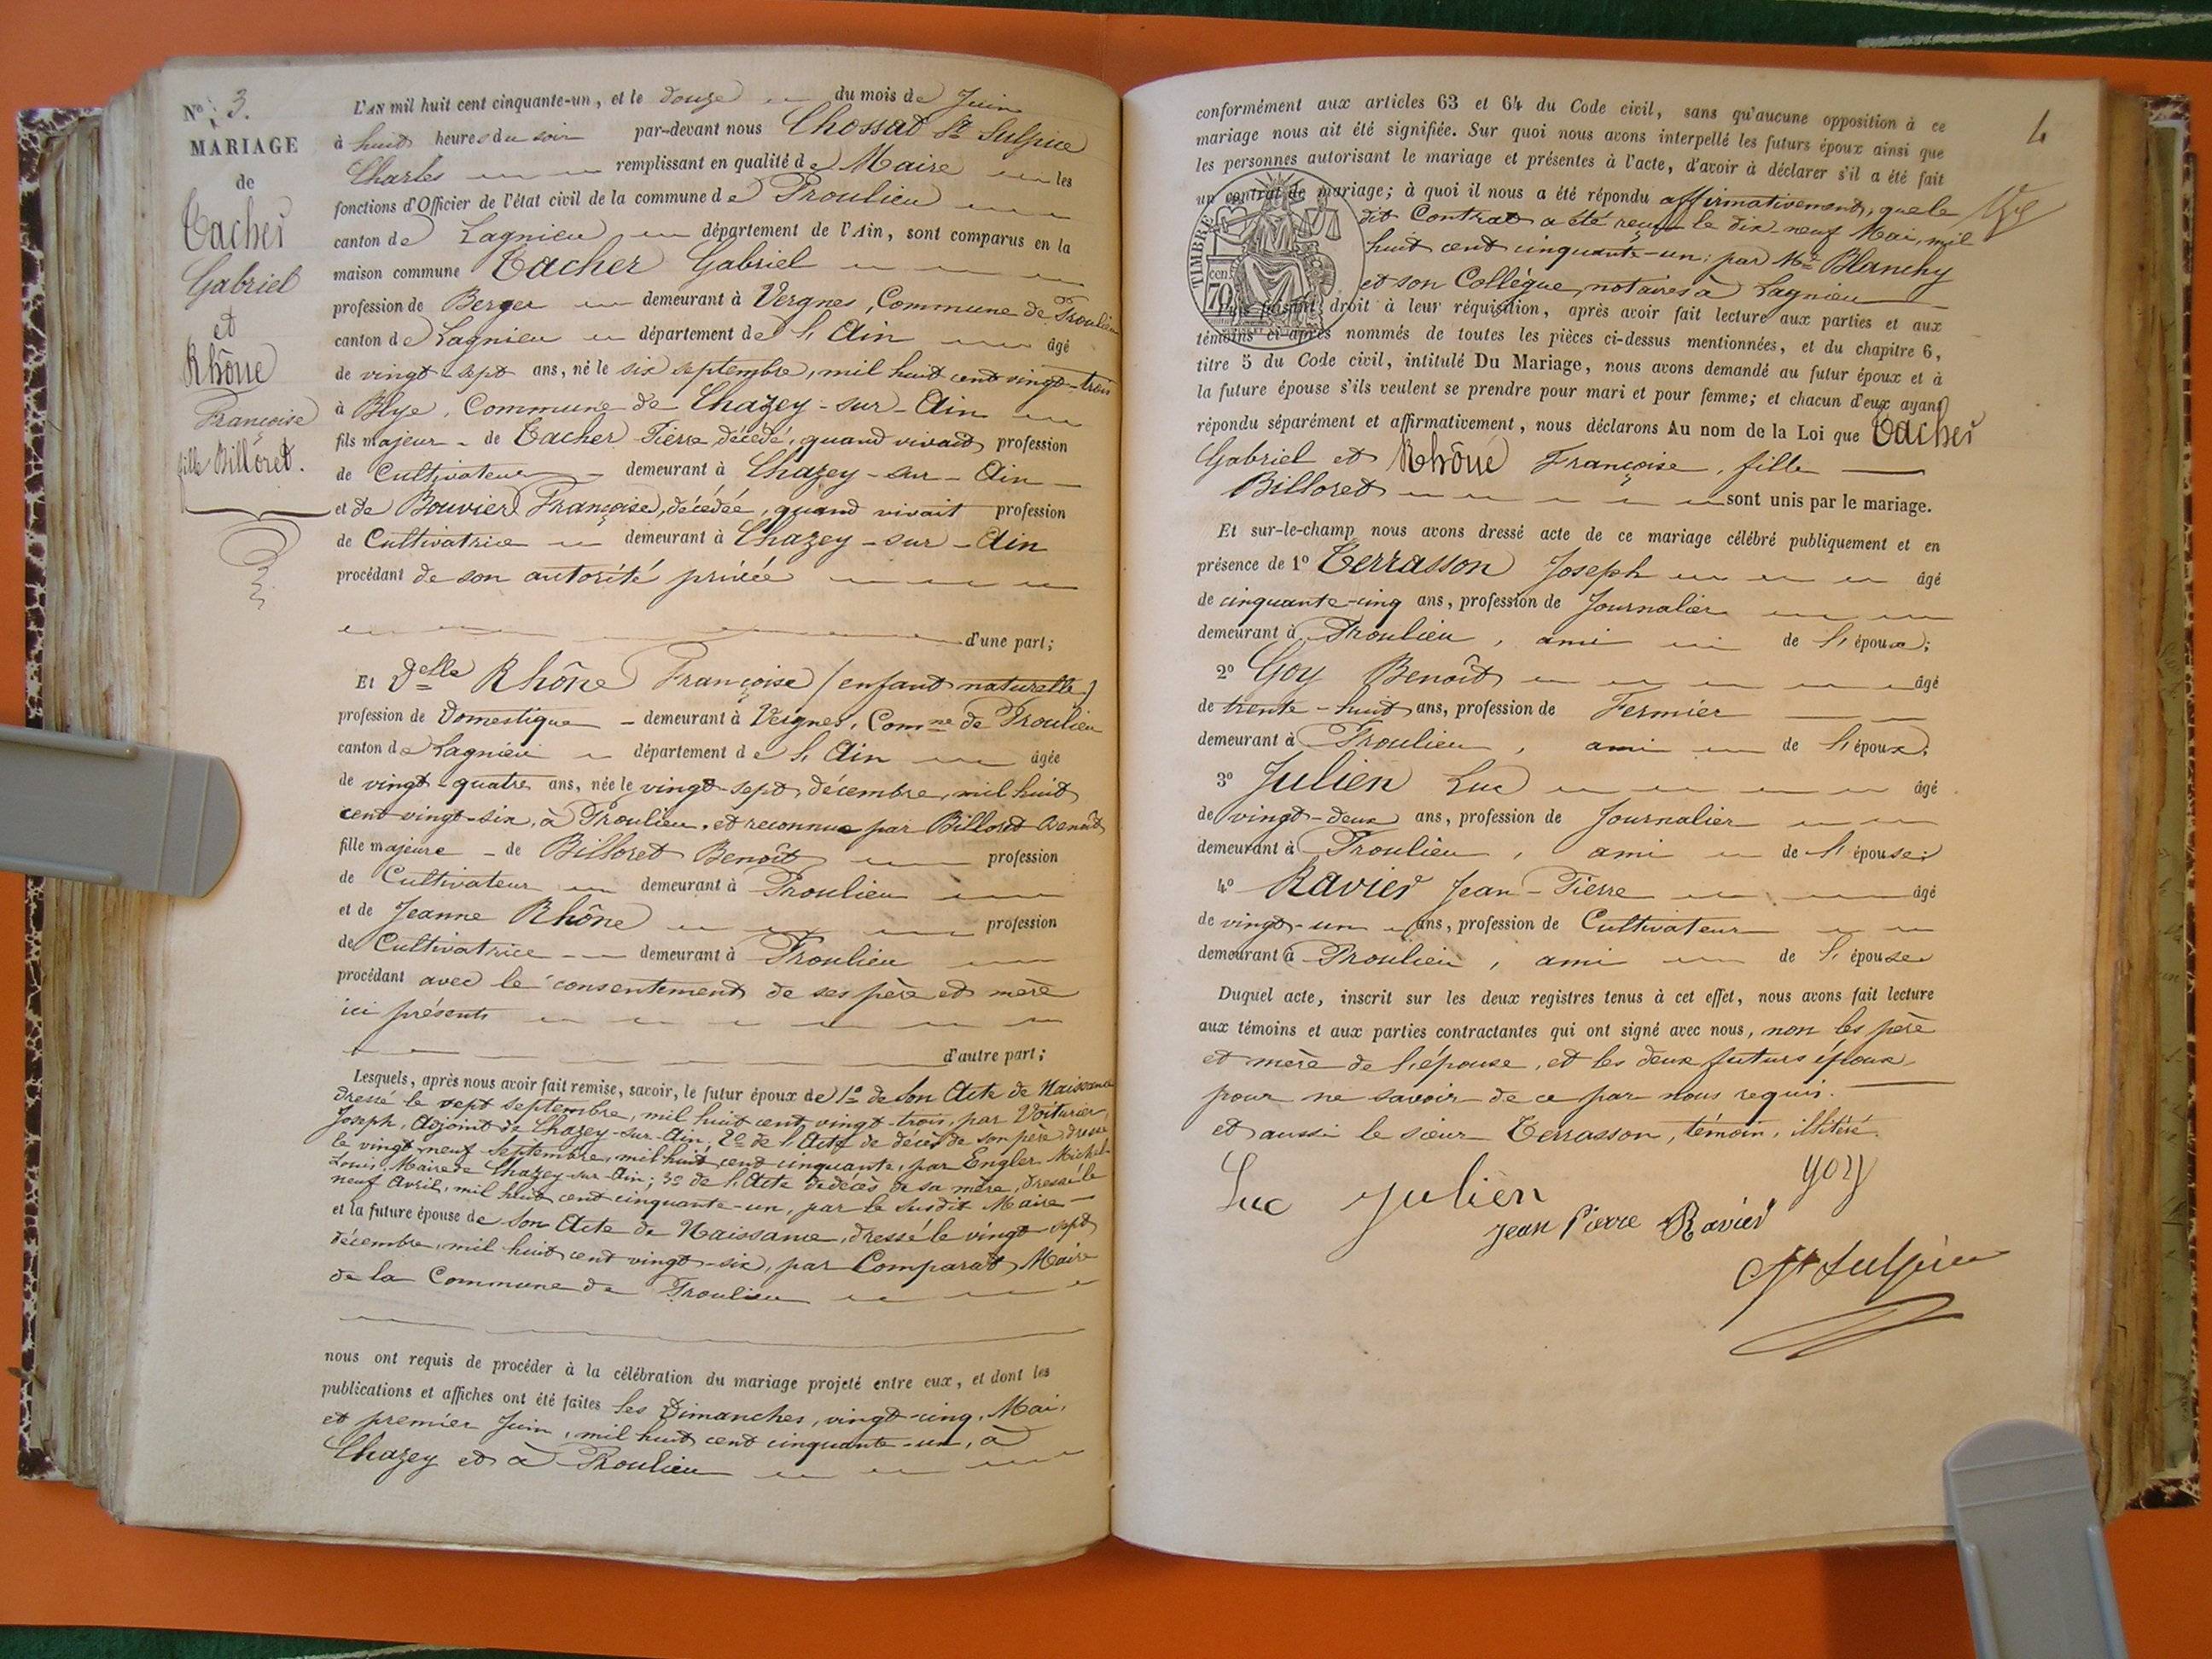 N.º 3.
MARIAGE
de
Tacher
Gabriel
et
Rhône
Françoise
fille Billoret.
L'AN mil huit cent cinquante-un, et le douze du mois de Juin
à huit heures du soir par-devant nous Chossat St Sulpice
Charles remplissant en qualité de Maire les
fonctions d'Officier de l'état civil de la commune de Proulieu
canton de Lagnieu département de l'Ain, sont comparus en la
maison commune Tacher Gabriel
profession de Berger demeurant à Vergnes, Commune de Proulieu
canton de Lagnieu département de l'Ain âgé
de vingt-sept ans, né le six septembre, mil huit cent vingt-trois
à Blye, Commune de Chazey-sur-Ain
fils majeur de Tacher Pierre décédé, quand vivait profession
de Cultivateur demeurant à Chazey-sur-Ain
et de Bouvier Françoise, décédée, quand vivait profession
de Cultivatrice demeurant à Chazey-sur-Ain
procédant de son autorité privée
d'une part;
Et Delle Rhône Françoise (enfant naturelle)
profession de Domestique demeurant à Vergnes, Comne de Proulieu
canton de Lagnieu département de l'Ain âgée
de vingt-quatre ans, née le vingt-sept décembre, mil huit
cent vingt-six, à Proulieu, et reconnue par Billoret Benoît
fille majeure de Billoret Benoît profession
de Cultivateur demeurant à Proulieu
et de Jeanne Rhône profession
de Cultivatrice demeurant à Proulieu
procédant avec le consentement de ses père et mère
ici présents
d'autre part;
Lesquels, après nous avoir fait remise, savoir, le futur époux de 1º de son Acte de Naissance
dressé le sept septembre, mil huit cent vingt-trois, par Voiturier
Joseph, Adjoint de Chazey-sur-Ain; 2º de l'Acte de décès de son père dressé
le vingt-neuf septembre, mil huit cent cinquante, par Engler Michel-
Louis, Maire de Chazey-sur-Ain; 3º de l'Acte de décès de sa mère, dressé le
neuf Avril, mil huit cent cinquante-un, par le susdit Maire
et la future épouse de son Acte de Naissance, dressé le vingt-sept
décembre, mil huit cent vingt-six, par Comparat, Maire
de la Commune de Proulieu
nous ont requis de procéder à la célébration du mariage projeté entre eux, et dont les
publications et affiches ont été faites les Dimanches, vingt-cinq, Mai,
et premier Juin, mil huit cent cinquante-un, à
Chazey et à Proulieu
4
conformément aux articles 63 et 64 du Code civil, sans qu'aucune opposition à ce
mariage nous ait été signifiée. Sur quoi nous avons interpellé les futurs époux ainsi que
les personnes autorisant le mariage et présentes à l'acte, d'avoir à déclarer s'il a été fait
un contrat de mariage; à quoi il nous a été répondu affirmativement, que le
dit Contrat a été reçu le dix neuf Mai, mil
huit cent cinquante-un; par Me Blanchy
et son Collègue, notaires à Lagnieu
TIMBRE
70 cen.
Puis faisant droit à leur réquisition, après avoir fait lecture aux parties et aux
témoins ci-après nommés de toutes les pièces ci-dessus mentionnées, et du chapitre 6,
titre 5 du Code civil, intitulé Du Mariage, nous avons demandé au futur époux et à
la future épouse s'ils veulent se prendre pour mari et pour femme; et chacun d'eux ayant
répondu séparément et affirmativement, nous déclarons Au nom de la Loi que Tacher
Gabriel et Rhône Françoise, fille
Billoret sont unis par le mariage.
Et sur-le-champ nous avons dressé acte de ce mariage célébré publiquement et en
présence de 1º Terrasson Joseph âgé
de cinquante-cinq ans, profession de Journalier
demeurant à Proulieu, ami de l'époux;
2º Goy Benoît âgé
de trente-huit ans, profession de Fermier
demeurant à Proulieu, ami de l'époux;
3º Julien Luc âgé
de vingt-deux ans, profession de Journalier
demeurant à Proulieu, ami de l'épouse;
4º Ravier Jean-Pierre âgé
de vingt-un ans, profession de Cultivateur
demeurant à Proulieu, ami de l'épouse
Duquel acte, inscrit sur les deux registres tenus à cet effet, nous avons fait lecture
aux témoins et aux parties contractantes qui ont signé avec nous, non les père
et mère de l'épouse, et les deux futurs époux,
pour ne savoir de ce par nous requis.
et aussi le sieur Terrasson, témoin, illitéré.
Luc Julien goy
Jean Pierre Ravier
St Sulpice